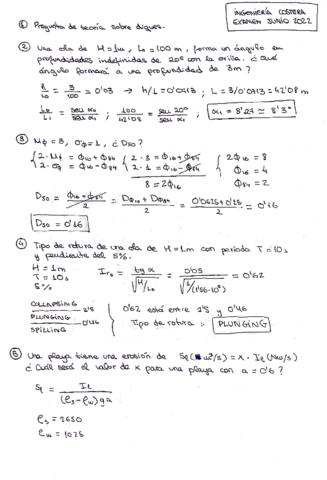 INGENIERÍA COSTERA
EXAMEN JUNIO 2022
① Pregunta de teoría sobre diques.
② Una ola de H=1m, L₀=100m, forma un ángulo en
profundidades indefinidas de 20º con la orilla. ¿Qué
ángulo formará a una profundidad de 3m?
h/L₀ = 3/100 = 0'03 → h/L = 0'0713 ; L = 3/0'0713 = 42'08 m
L₀/L₁ = sen α₀/sen α₁ ; 100/42'08 = sen 20º/sen α₁ ; α₁ = 8'27 ≈ 8'3º
③ Mφ = 3, σφ = 1, ¿D₅₀?
2·Mφ = φ₁₆ + φ₈₄ 2·3 = φ₁₆ + φ₈₄ 2φ₁₆ = 8
2·σφ = φ₁₆ - φ₈₄ 2·1 = φ₁₆ - φ₈₄ φ₁₆ = 4
8 = 2φ₁₆ φ₈₄ = 2
D₅₀ = φ₁₆ + φ₈₄/2 = Dφ₁₆ + Dφ₈₄/2 = 0'0625 + 0'25/2 = 0'16
D₅₀ = 0'16
④ Tipo de rotura de una ola de H=1m con periodo T=10s
y pendiente del 5%.
H = 1m
T = 10s
5%
Ir₀ = tg α/√(H/L₀) = 0'05/√(1/(1'56·10²)) = 0'62
COLLAPSING
2'5
PLUNGING
0'46
SPILLING
0'62 está entre 2'5 y 0'46
Tipo de rotura: PLUNGING
⑤ Una playa tiene una erosión de Sℓ (m³/s) = x · Iℓ (Nw/s)
¿Cuál será el valor de x para una playa con a = 0'6?
Sℓ = Iℓ/(ρs - ρw) g a
ρs = 2650
ρw = 1025